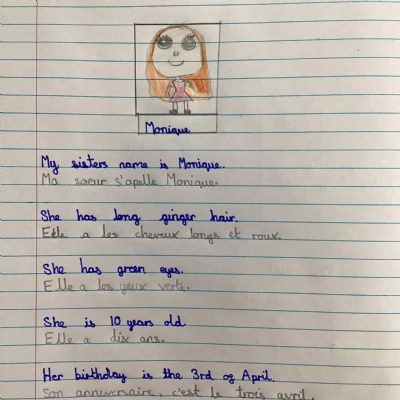 Monique
My sisters name is Monique.
Ma soeur s'apelle Monique.
She has long ginger hair.
Elle a les cheveux longs et roux.
She has green eyes.
Elle a les yeux verts.
She is 10 years old.
Elle a dix ans.
Her birthday is the 3rd of April.
Son anniversaire, c'est le trois avril.